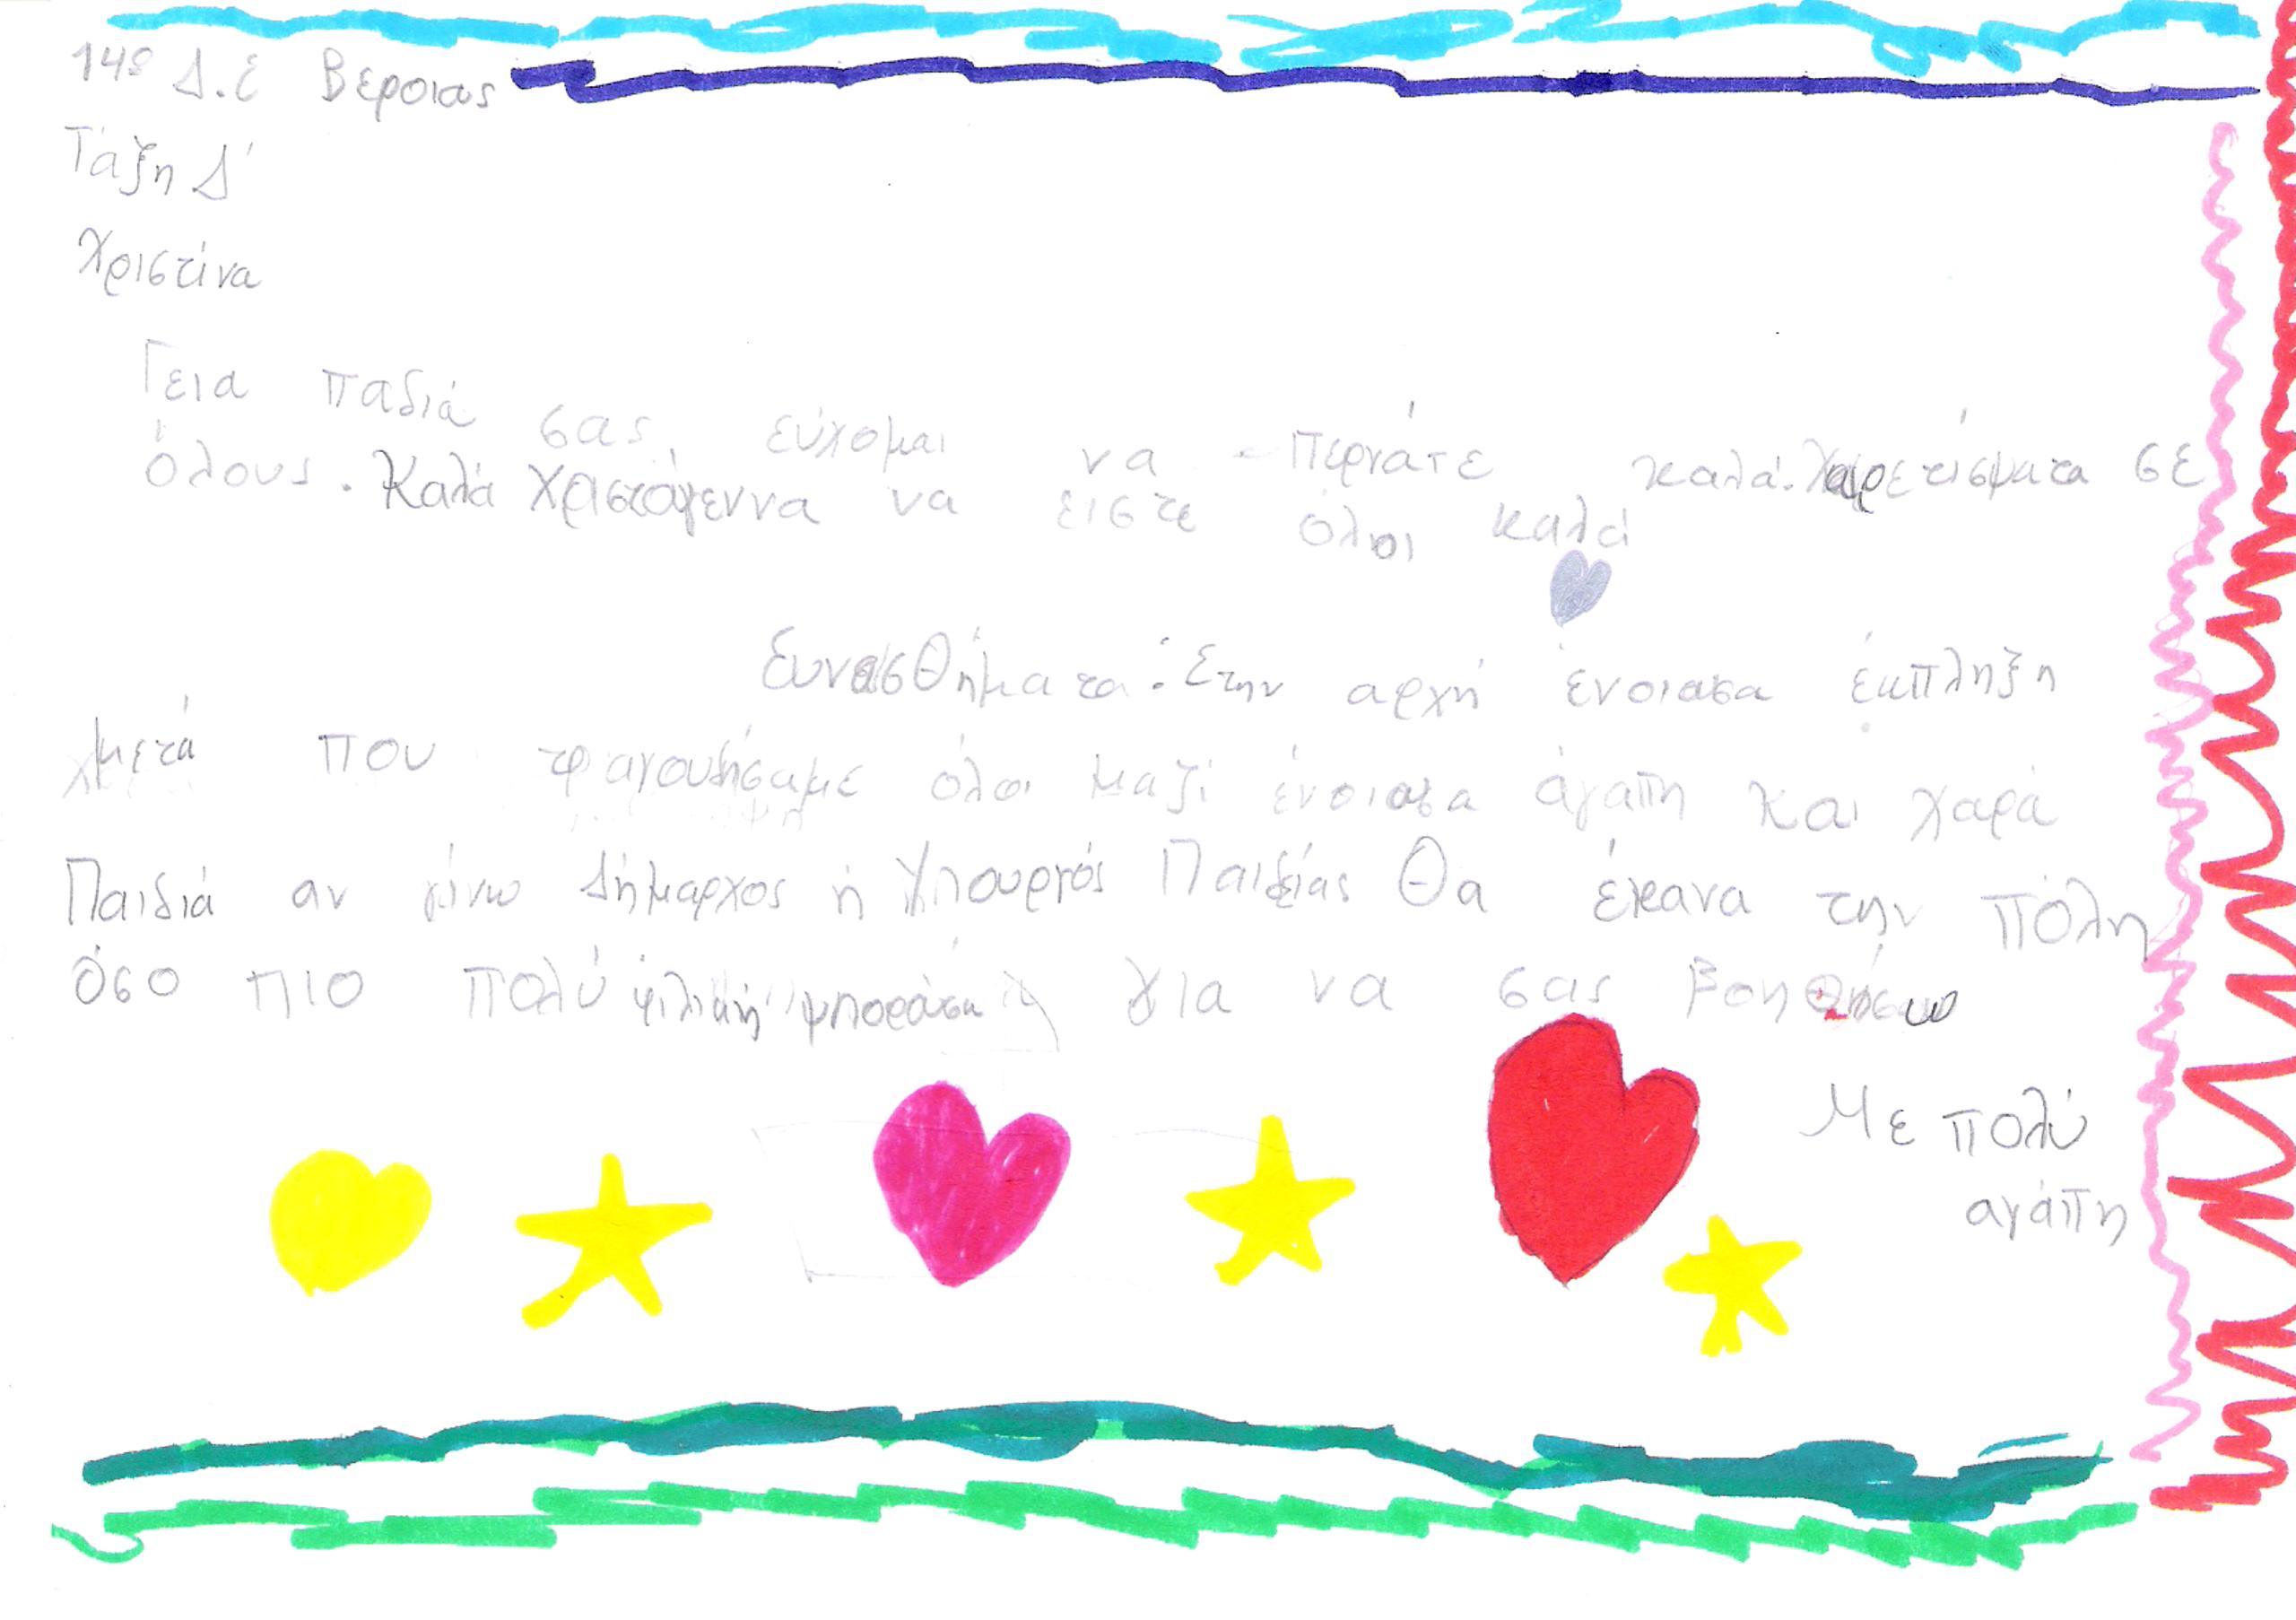 14ο Δ.Σ Βεροιας
Τάξη Δ'
Χριστίνα
Γεια παδιά σας, εύχομαι να περνάτε καλά. Χαιρετίσματα σε
όλους. Καλά Χριστόγεννα να ειστε όλοι καλά
Συναισθήματα: Στην αρχή ένοιασα έκπληξη
μετά που τραγουδήσαμε όλοι μαζί ένοιασα άγαπη και χαρά
Παιδιά αν γίνω Δήμαρχος ή Υπουργός Παιδείας θα έκανα την πόλη
όσο πιο πολύ φιλική μπορούσα για να σας βοηθήσω
Με πολύ
αγάπη